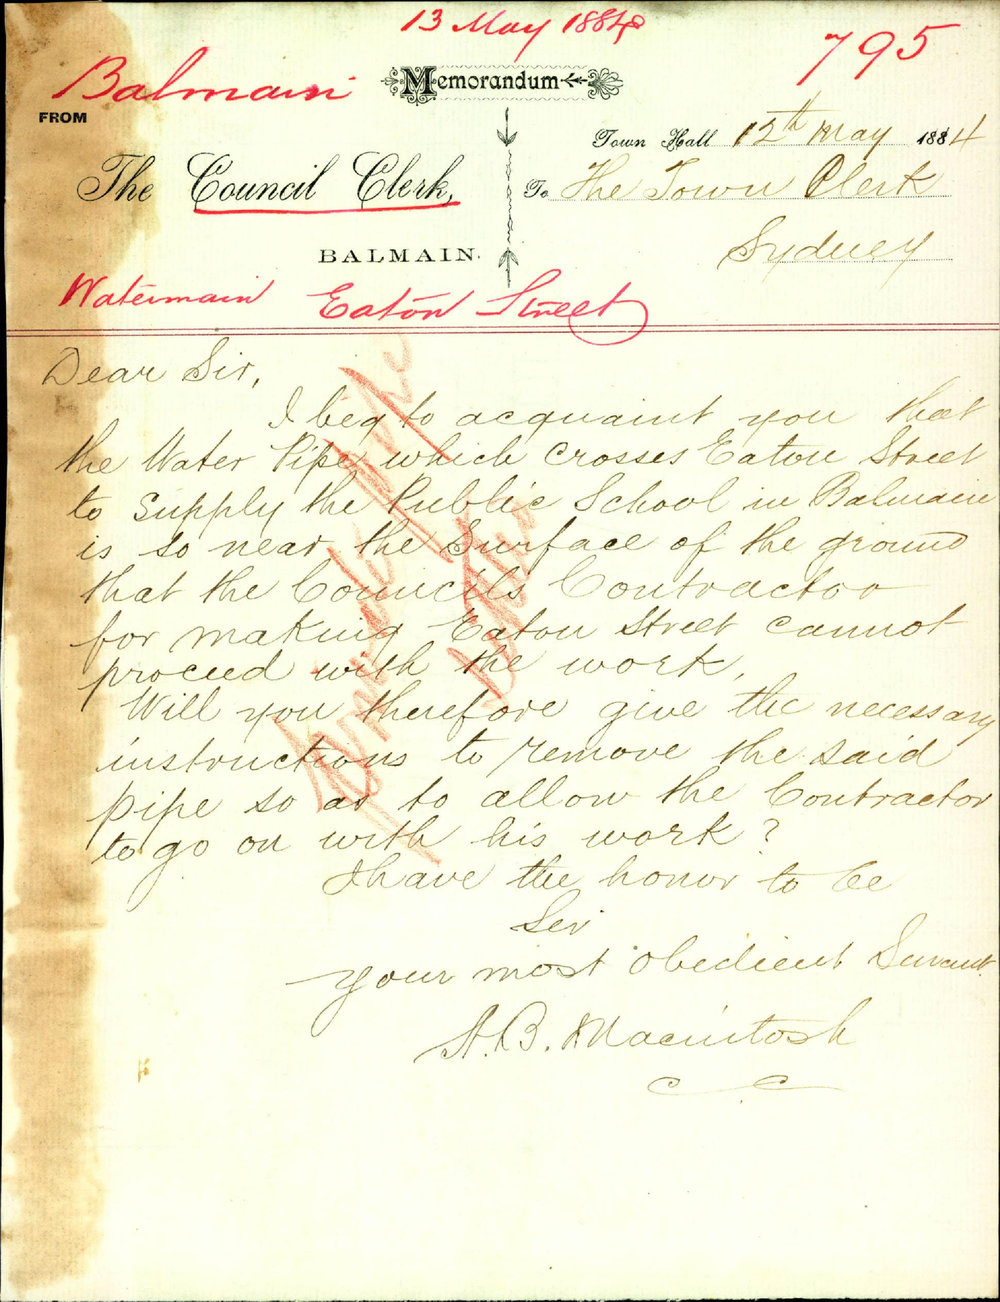 13 May 1884
795
Balmain
Memorandum
FROM
Town Hall 12th May 1884
The Council Clerk,
To The Town Clerk
BALMAIN.
Sydney
Watermain Eaton Street
Dear Sir,
I beg to acquaint you that
the Water Pipe which crosses Eaton Street
to supply the Public School in Balmain
is so near the Surface of the ground
that the Councils Contractor
for making Eaton Street cannot
proceed with the work,
Will you therefore give the necessary
instructions to remove the said
pipe so as to allow the Contractor
to go on with his work?
I have the honor to be
Sir
your most obedient Servant
A. B. Macintosh